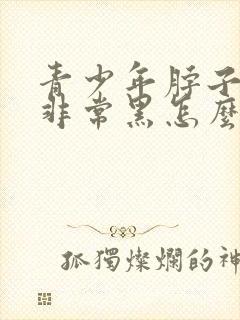 青少年脖子
非常黑怎麼
孤獨燦爛的神